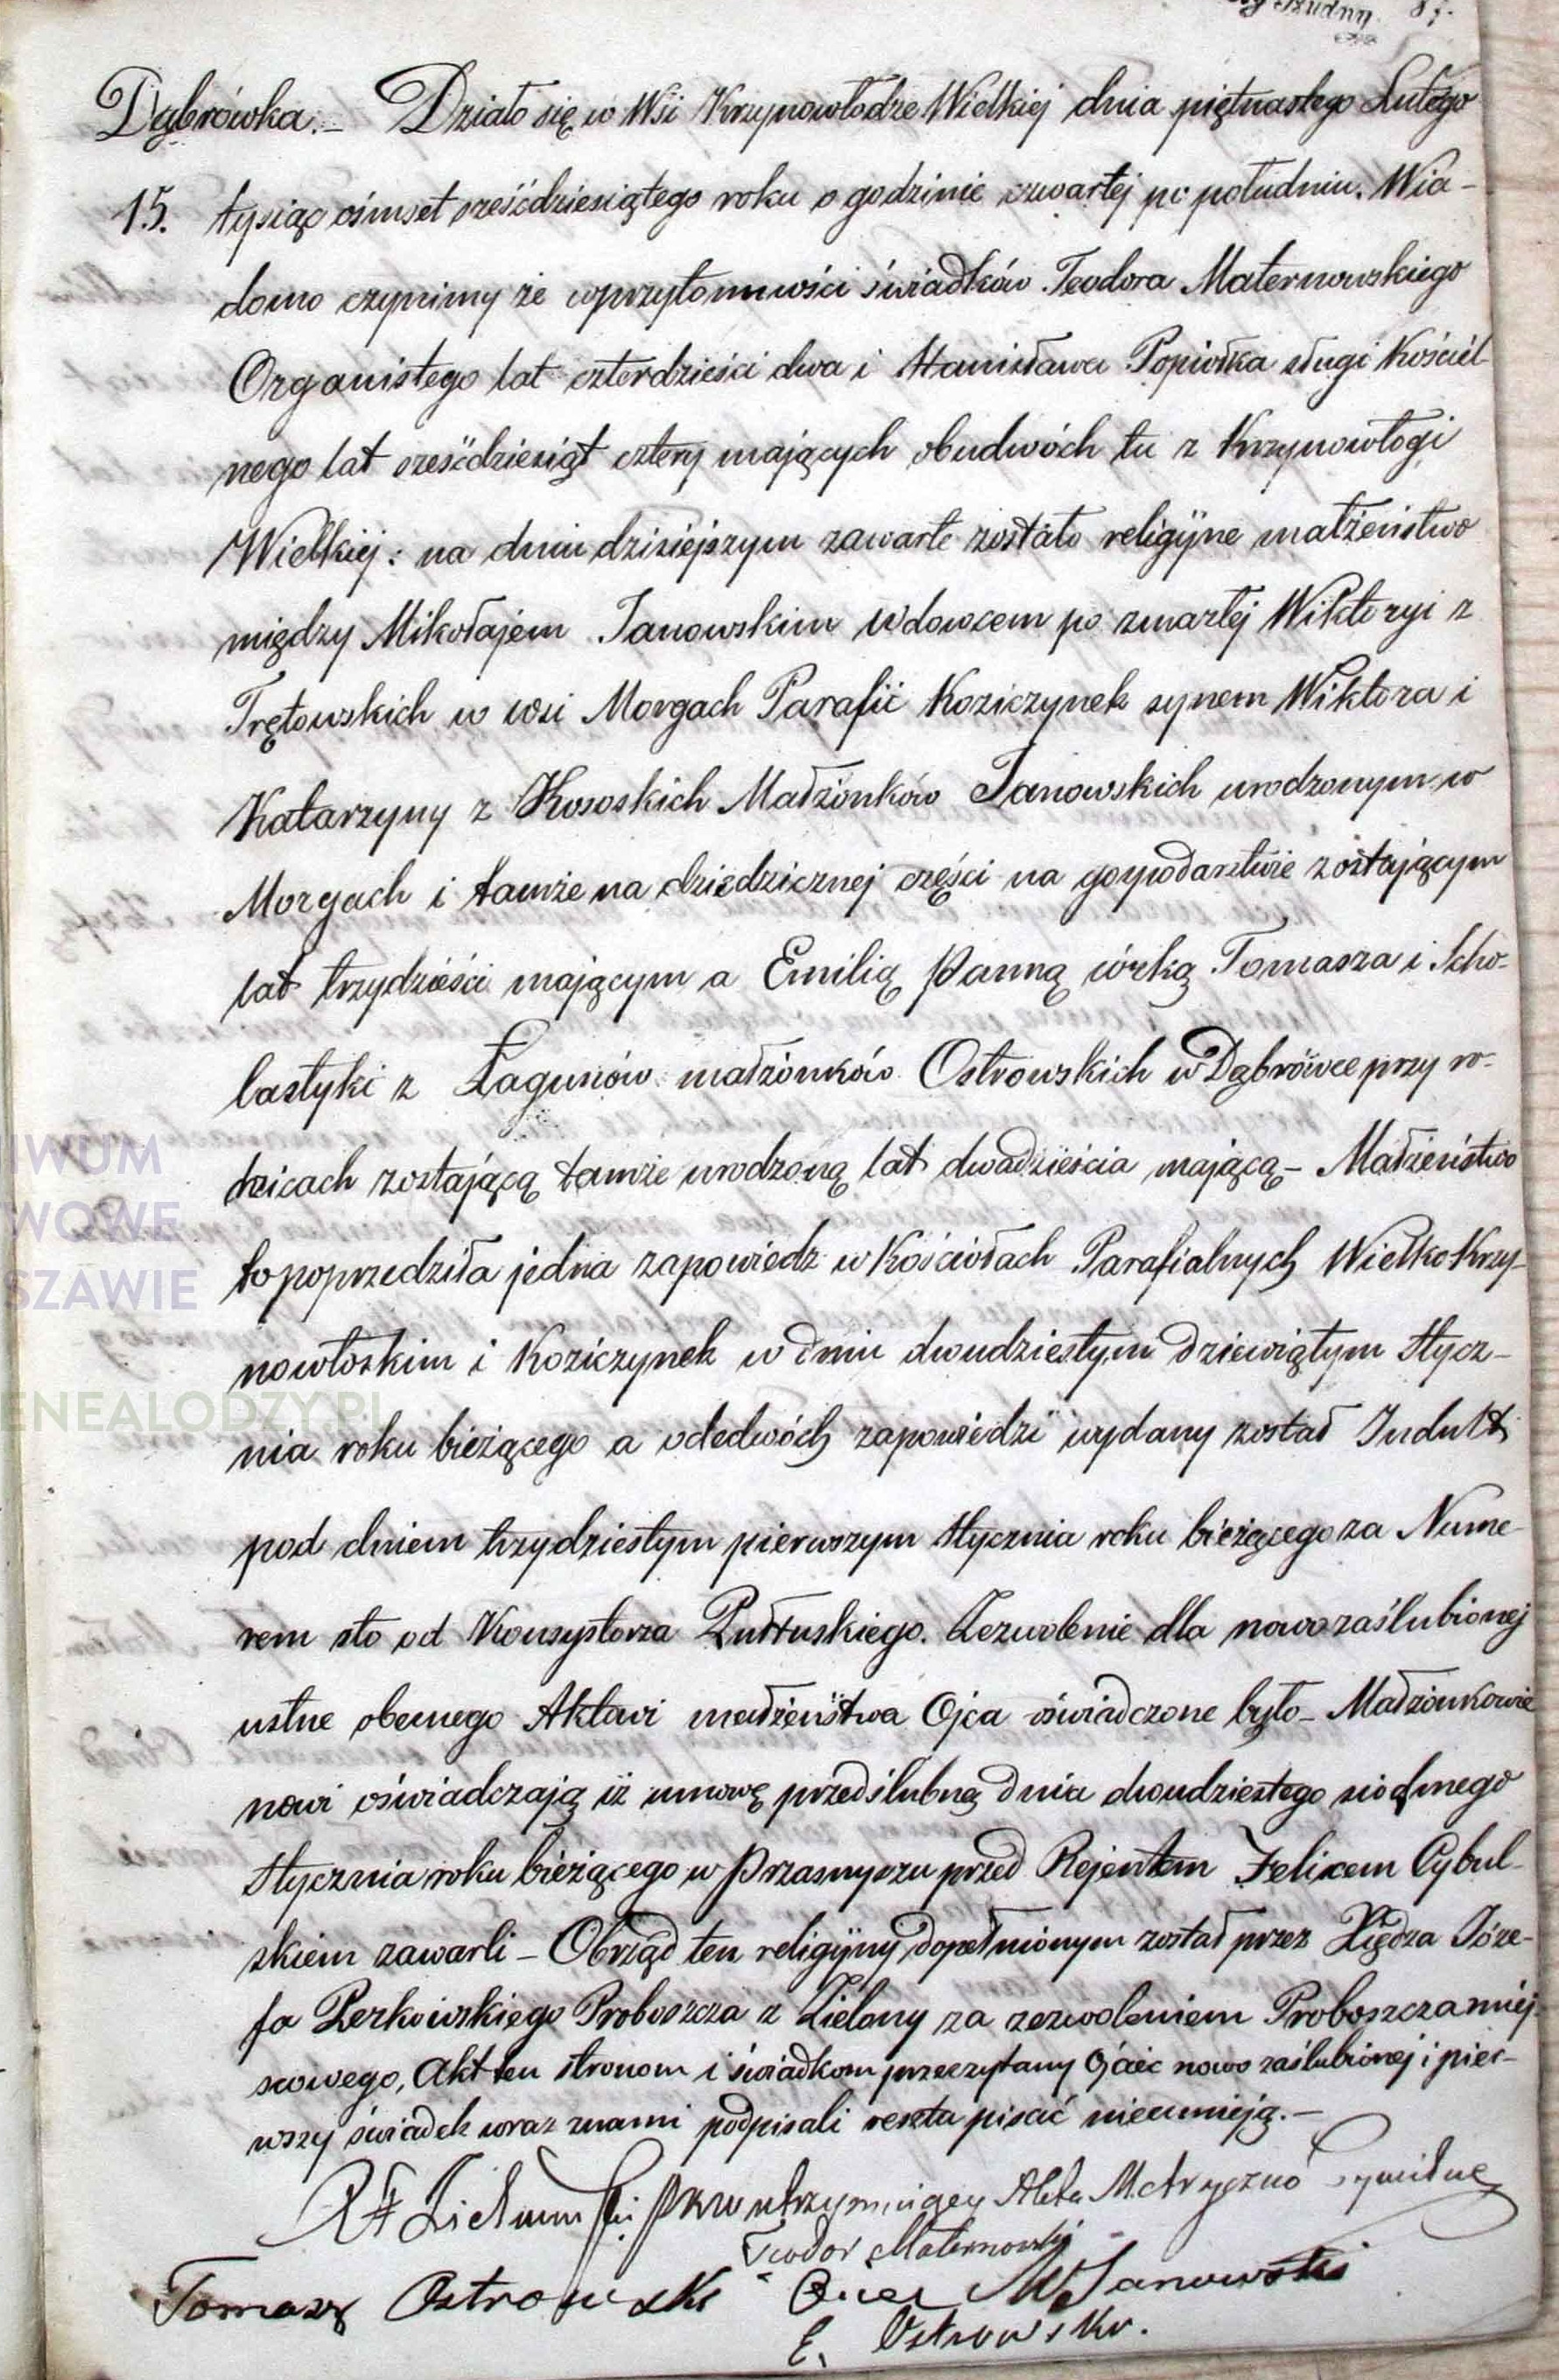 87.
Dąbrówka. – Działo się w Wsi Krzynowłodze Wielkiej dnia piętnastego Lutego
15. tysiąc ośmset sześćdziesiątego roku o godzinie czwartej po południu. Wia-
domo czynimy że wprzytomności świadków Teodora Maternowskiego
Organistego lat czterdzieści dwa i Stanisława Popiołka sługi Kościel-
nego lat sześćdziesiąt cztery mających obudwóch tu z Krzynowłogi
Wielkiej: na dniu dzisiejszym zawarte zostało religijne małżeństwo
między Mikołajem Janowskim wdowcem po zmarłej Wiktoryi z
Trętowskich w wsi Morgach Parafii Koziczynek synem Wiktora i
Katarzyny z Kososkich Małżonków Janowskich urodzonym w
Morgach i tamże na dziedzicznej części na gospodarstwie zostającym
lat trzydzieści mającym a Emilią Panną córką Tomasza i Scho-
lastyki z Łagunów małżonków Ostrowskich w Dąbrówce przy ro-
dzicach zostającą tamże urodzoną lat dwadzieścia mającą – Małżeństwo
to poprzedziła jedna zapowiedz w Kościołach Parafialnych Wielko Krzy-
nowłoskim i Koziczynek w dniu dwudziestym dziewiątym Stycz-
nia roku bieżącego a odedwóch zapowiedzi wydany został Indult
pod dniem trzydziestym pierwszym Stycznia roku bieżącego za Nume-
rem sto od Konsystorza Pułtuskiego. Zezwolenie dla nowozaślubionej
ustne obecnego Aktowi małżeństwa Ojca oświadczone było – Małżonkowie
nowi oświadczają iż umowę przedślubną dnia dwudziestego siodmego
Stycznia roku bieżącego w Przasnyszu przed Rejentem Felixem Cybul-
skiem zawarli – Obrząd ten religijny dopełnionym został przez Xiędza Józe-
fa Perkowskiego Proboszcza z Zielony za zezwoleniem Proboszcza miej-
scowego, Akt ten stronom i świadkom przeczytany Ojciec nowo zaślubionej i pier-
wszy świadek wraz znami podpisali reszta pisać nieumieją. –
Teodor Maternowski
Tomasz Ostrowski Ociec M Janowski
E. Ostrowska.
IWUM
WOWE
SZAWIE
ENEALODZY.PL